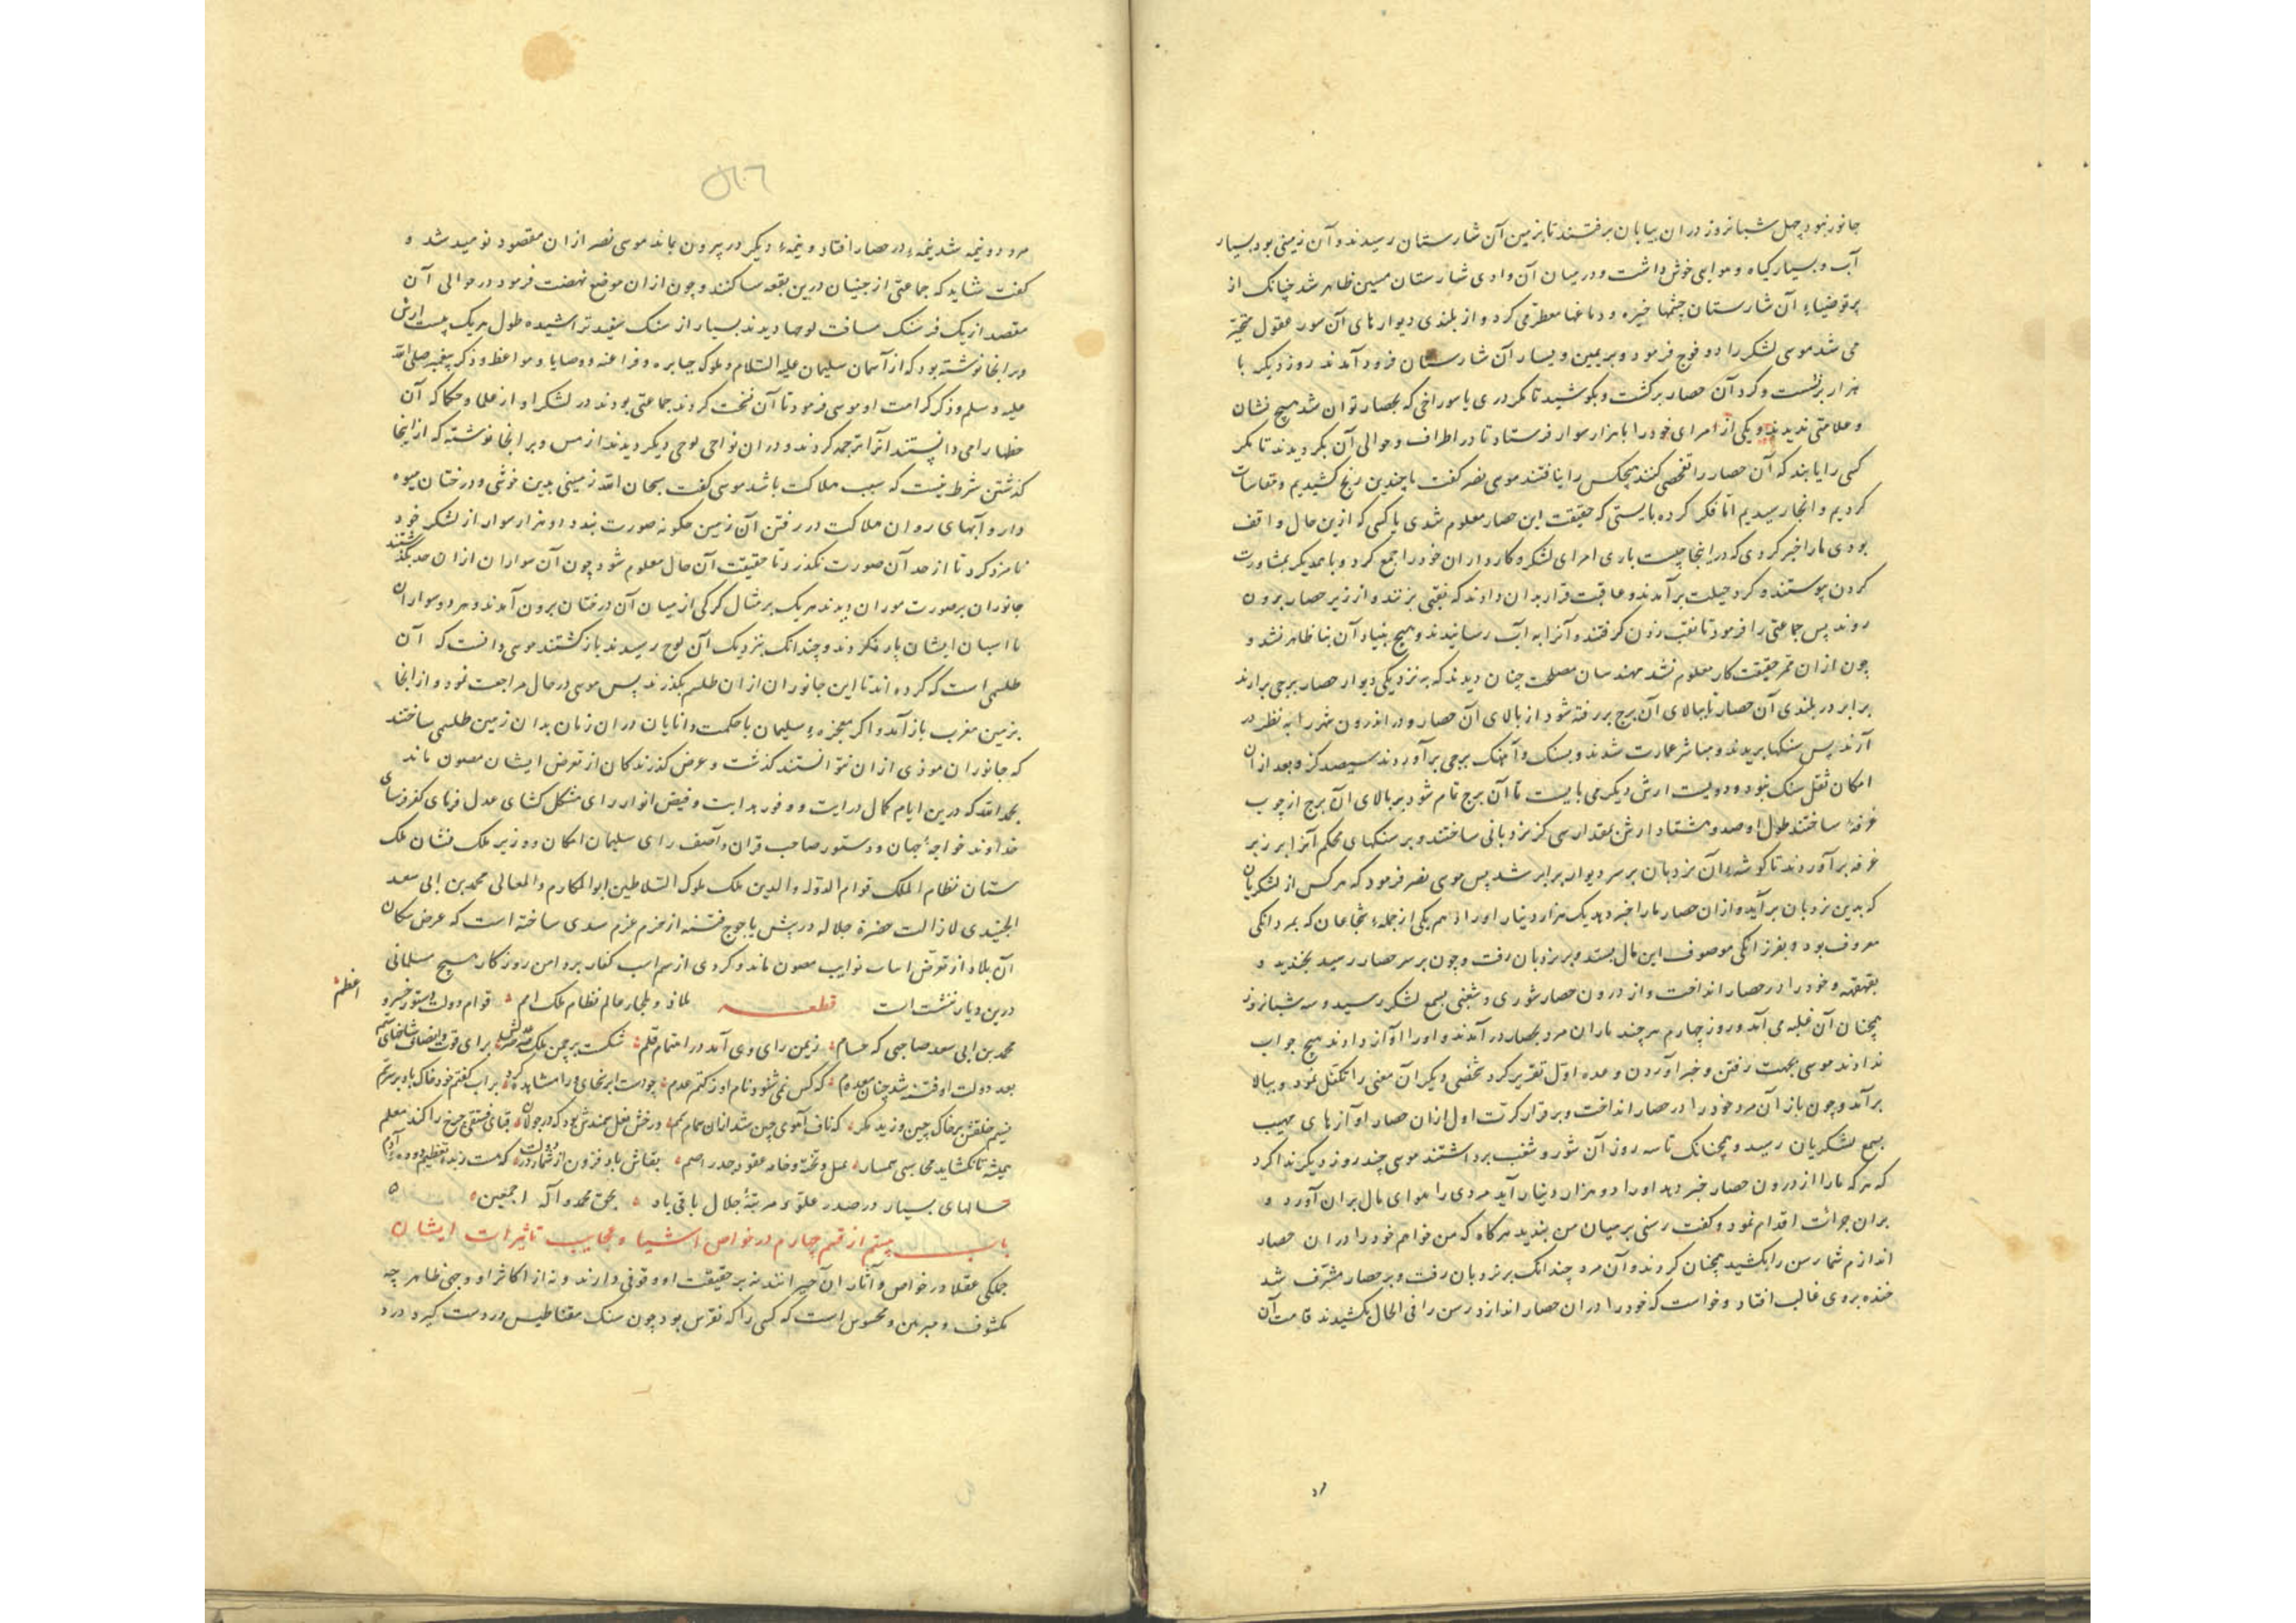 جانور نبود چهل شبانروز در ان بیابان برفتند تا بزمین آن شارستان رسیدند و آن زمینی بود بسیار
آب و بسیار کیاه و هوایی خوش داشت و درمیان آن وادی شارستان مسین ظاهر شد چنانک از
پرتو ضیاء آن شارستان چشمها خیره و دماغها می کرد و از بلندی دیوارهای آن سور عقول متحیر
می شد موسی لشکر را دو فوج فرمود و بر یمین و یسار آن شارستان فرود آمدند روز دیکر با
هزار برنشست و کرد آن حصار برکشت و بکوشید تا مکر دری یا سوراخی که بحصار توان شد هیچ نشان
و علامتی ندیدند و یکی از امرای خود را با هزار سوار فرستاد تا در اطراف و حوالی آن بکردیدند تا مکر
کسی را یابند که آن حصار را تفحص کنند هیچکس را نیافتند موسی نصر کفت با چندین رنج کشیدیم و مقاسات
کردیم و انجا رسیدیم اما فکر کرده بایستی که حقیقت این حصار معلوم شدی یا کسی که ازین حال واقف
بودی مارا خبر کردی که در اینجا چیست باری امرای لشکر و کارداران خود را جمع کرد و باهمدیکر بمشاورت
کردن پیوستند و کرد حیلت برآمدند و عاقبت قرار بدان دادند که نقبی بزنند و از زیر حصار برون
روند پس جماعتی را فرمود تا نقب زدن کرفتند و آنرا به آب رسانیدند و هیچ بنیاد آن بنا ظاهر نشد و
چون از ان ممر حقیقت کار معلوم نشد مهندسان مصلحت چنان دیدند که به نزدیکی دیوار حصار برجی برارند
برابر در بلندی آن حصار تا ببالای آن برج بررفته شود از بالای آن حصار و در اندرون شهر را به نظر در
آرند پس سنکها بریدند و مباشر عمارت شدند و بسنک و آهنک برجی برآوردند سیصد کز و بعد از ان
امکان ثقل سنک نبود و دویست ارش دیکر می بایست تا آن برج تمام شود بر بالای آن برج از چوب
غرفهٔ ساختند طول او صد و هشتاد ارش بمقدار سی کز نردبانی ساختند و بر سنکهای محکم آنرا بر زبر
غرفه برآوردند تا کوشهٔ آن نردبان بر سر دیوار برابر شد پس موسی نصر فرمود که هر کس از لشکریان
که بدین نردبان برآید و ازان حصار مارا خبر دهد یک هزار دینار او را دهم یکی از جملهٔ شجاعان که بمردانکی
معروف بود و بفرزانکی موصوف این مال بستد و بر نردبان رفت و چون بر سر حصار رسید بخندید و
بقهقهه و خود را در حصار انداخت و از درون حصار شوری و شغبی بسمع لشکر رسید و سه شبانروز
همچنان آن غلبه می آمد و روز چهارم هر چند یاران مرد بحصار در آمدند و اورا آواز دادند هیچ جواب
ندادند موسی بجهت رفتن و خبر آوردن وعده اول تقریر کرد شخصی دیکر آن معنی را تکفل نمود و ببالا
برآمد و چون باز آن مرد خود را در حصار انداخت و بر قرار کرت اول ازان حصار آوازهای مهیب
بسمع لشکریان رسید و همچنانک تا سه روز آن شور و شغب برداشتند موسی چند روز دیکر ندا کرد
که هر که مارا از درون حصار خبر دهد او را دو هزار دینار آید مردی را هوای مال بران آورد و
بران جرات اقدام نمود و کفت رسنی بر میان من بندید هرکاه که من خواهم خود را در ان حصار
اندازم شما رسن را بکشید همچنان کردند و آن مرد چندانک بر نردبان رفت و بر حصار مشرف شد
خنده بر وی غالب افتاد و خواست که خود را دران حصار اندازد رسن را فی الحال بکشیدند قامت آن
مرد دو نیمه شد نیمهٔ در حصار افتاد و نیمهٔ دیکر در بیرون بماند موسی نصر ازان مقصود نومید شد و
کفت شاید که جماعتی از جنیان درین بقعه ساکنند و چون ازان موضع نهضت فرمود در حوالی آن
مقصد از یک فرسنک مسافت لوحها دیدند بسیار از سنک سفید تراشیده طول هر یک بیست ارش
وبر انجا نوشته بود که از آسمان سلیمان علیه السلام و ملوک جبابره و فراعنه و وصایا و مواعظ و ذکر پیغمبر صلی الله
علیه و سلم و ذکر کرامت او موسی فرمود تا آن نسخت کردند جماعتی بودند در لشکر او از علما و حکما که آن
خطها را می دانستند آنرا ترجمه کردند و دران نواحی لوحی دیکر دیدند از مس و بر انجا نوشته که از اینجا
کذشتن شرط نیست که سبب هلاکت باشد موسی کفت سبحان الله زمینی بدین خوشی و درختان میوه
دار و آبهای روان هلاکت در رفتن آن زمین چکونه صورت بندد دو هزار سوار از لشکر خود
نامزد کرد تا از حد آن صورت بکذرد تا حقیقت آن حال معلوم شود چون آن سواران ازان حد بکذشتند
جانوران بر صورت موران دیدند هر یک بر مثال کرکی از میان آن درختان برون آمدند و مرد و سواران
با اسبان ایشان پاره کردند و چندانک بنزدیک آن لوح رسیدند بازکشتند موسی دانست که آن
طلسمی است که کرده اند تا این جانوران ازان طلسم نکذرند پس موسی در حال مراجعت نمود و از انجا
بزمین مغرب باز آمد و اکر معجزهٔ سلیمان با حکمت دانایان دران زمان بدان زمین طلسمی ساختند
که جانوران موذی ازان نتوانستند کذشت و عرض کذرندکان از تعرض ایشان مصون ماند
بحمد الله که درین ایام کمال درایت و وفور هدایت و فیض انوار رای مشکل کشای عدل فزمای کفر فرسای
خداوند خواجهٔ جهان و دستور صاحب قران و آصف رای سلیمان امکان و وزیر ملک نشان ملک
ستان نظام الملک قوام الدوله و الدین ملک ملوک السلاطین ابو المکارم والمعالی محمد بن ابی سعد
الجنیدی لا زالت حضرة جلاله در پیش یاجوج فتنه از حزم عزم سدی ساخته است که عرض سکان
آن بلاد از تعرض اسباب نوایب مصون ماند و کردی از سم اسب کفار بر دامن روزکار هیچ مسلمانی
درین دیار ننشست است قطعه ملاذ و ملجاء عالم نظام ملک امم قوام دولت و دستور خسرو
اعظم
محمد بن ابی سعد صاحبی که حسام زیمن رای وی آمد در اهتمام قلم
بعد دولت او فتنه شد چنان معدوم که کس نمی شنود نام او ز کتم عدم
نسیم خلقش بر خاک چین وزید مکر که ناف آهوی چین شد ازان
همیشه تا نکشاید محاسبی بسیار
سالهای بسیار در صدر علو و مرتبهٔ جلال باقی باد بحق محمد و آله اجمعین
باب بیستم از قسم چهارم در خواص اشیا و عجایب تاثیرات ایشان
جملکی عقلا در خواص و آثار ان حیرانند نه بر حقیقت او وقوفی دارند و نه از اکثار او وجهی ظاهر چه
مکشوف و مبرهن و محسوس است که کسی را که نقرس بود چون سنک مقناطیس در دست کیرد درد